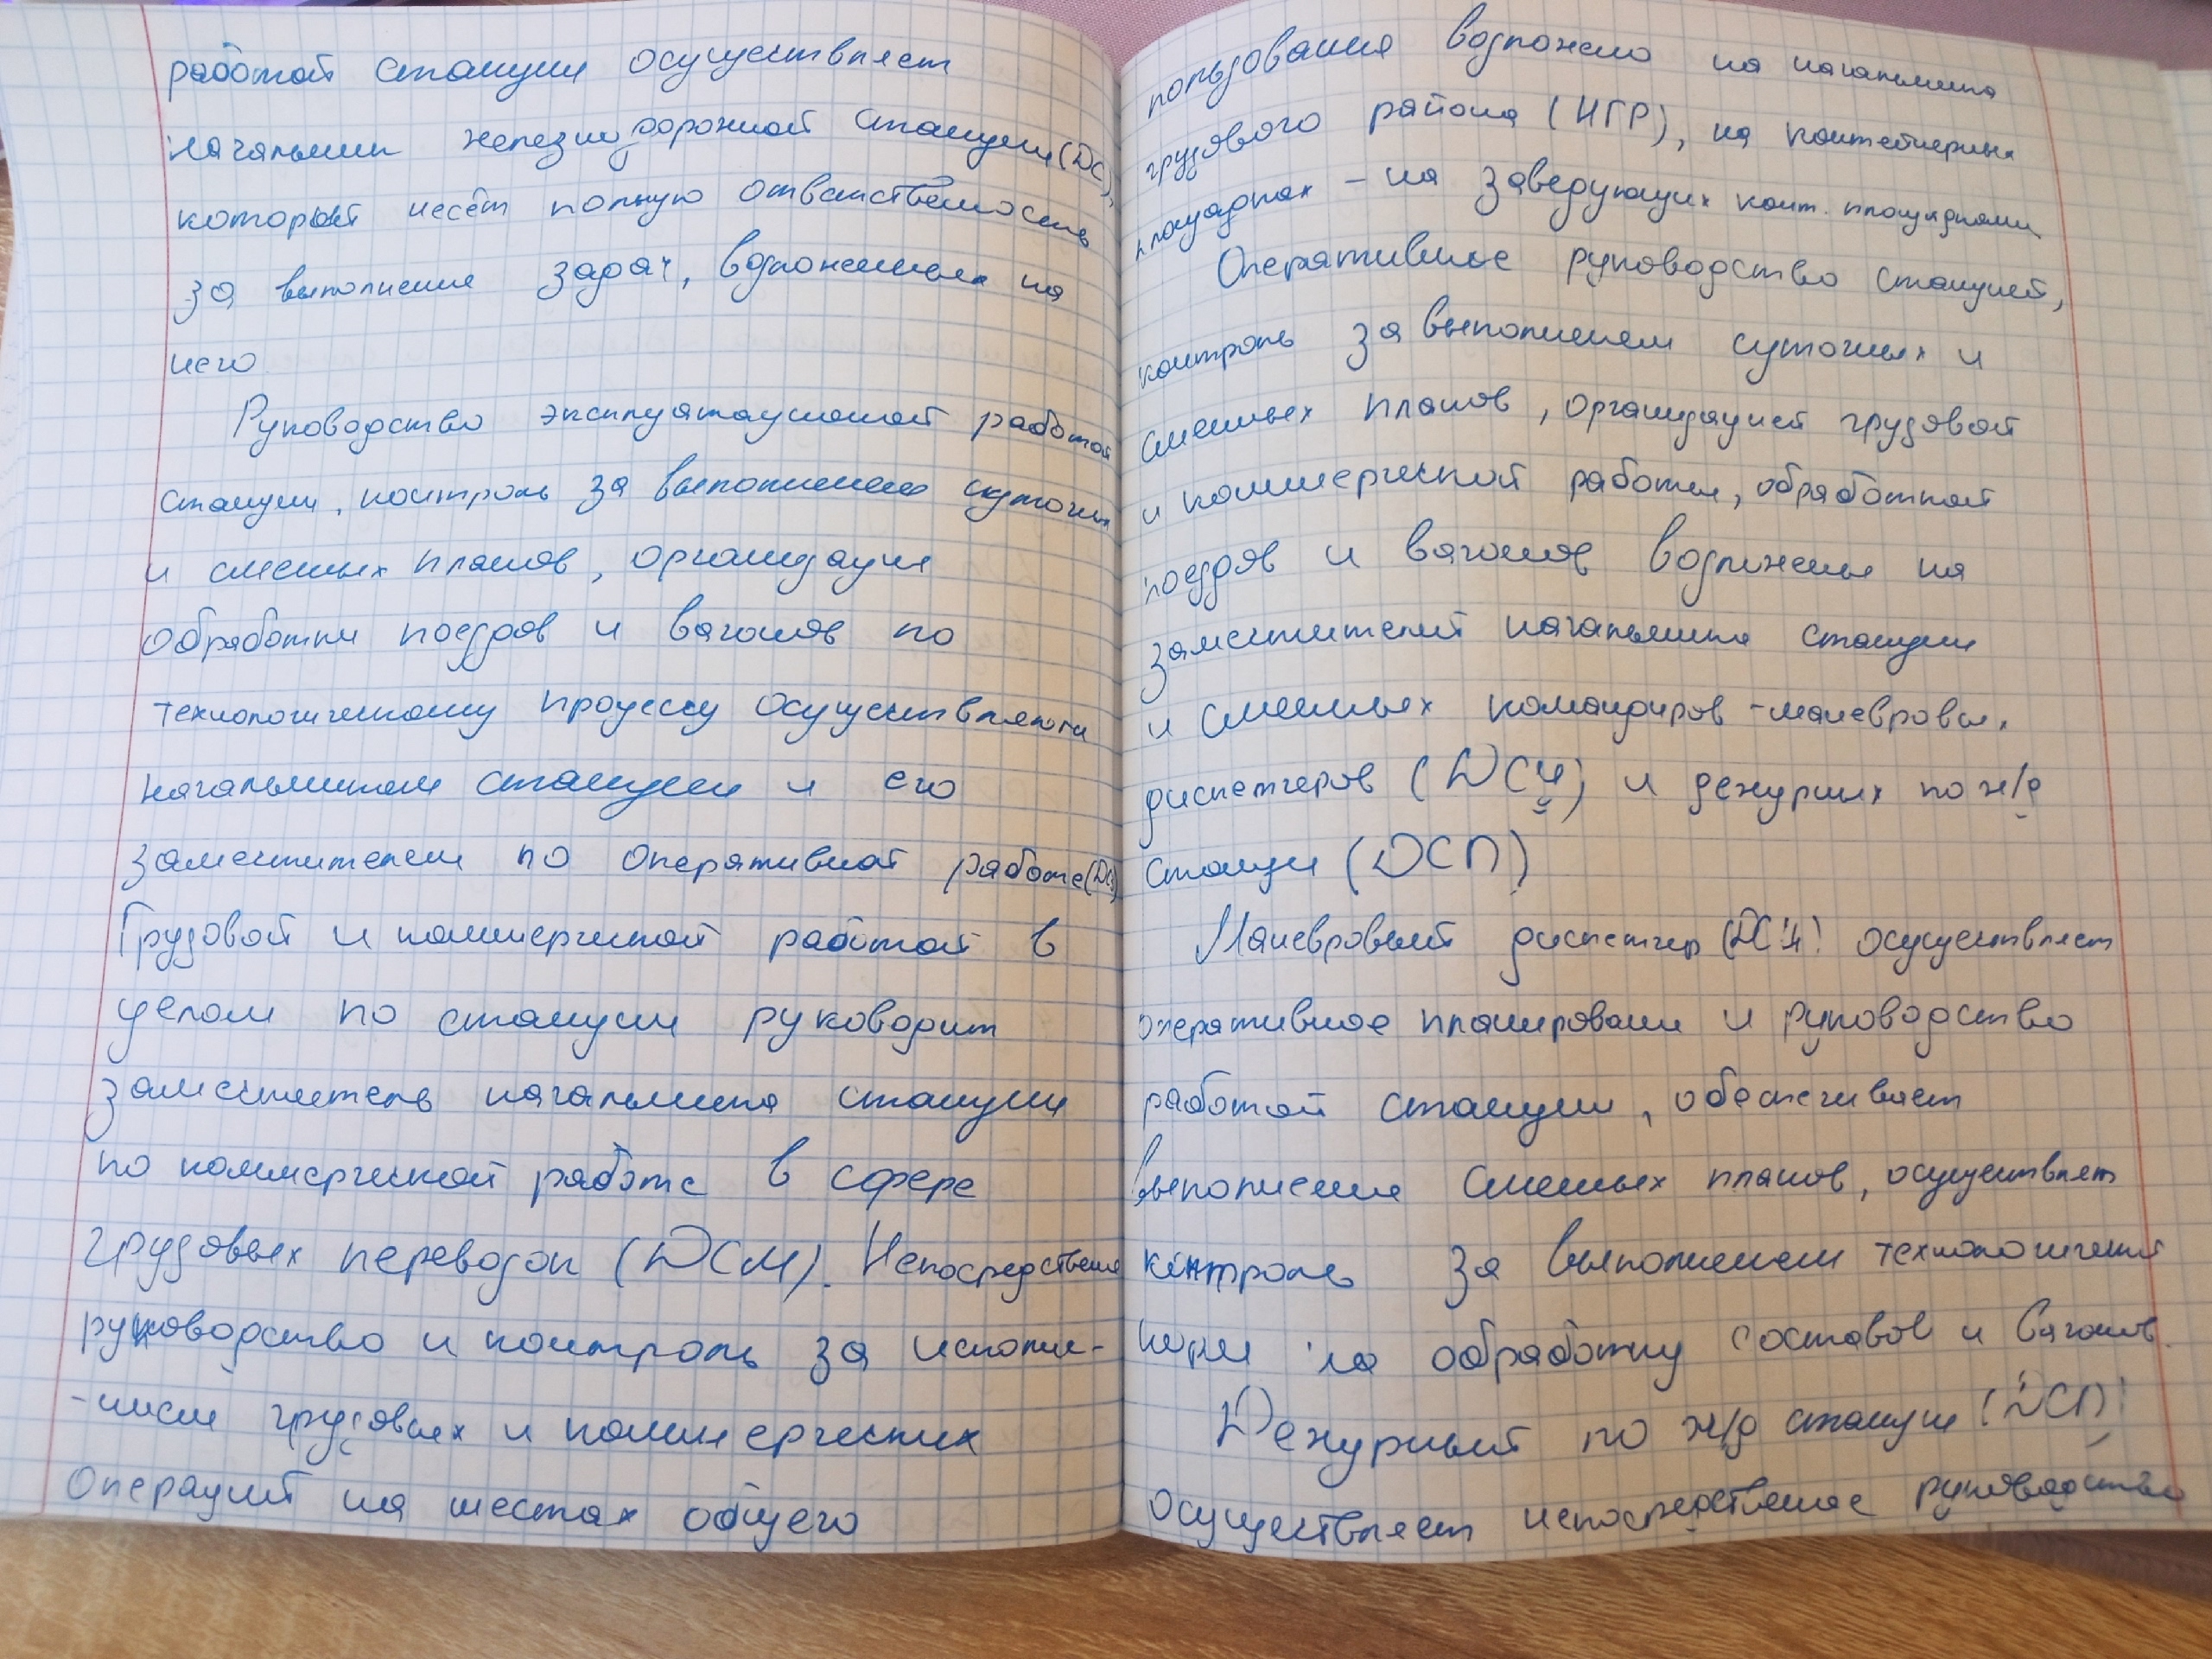 работой станции осуществляет
начальник железнодорожной станции (ДС),
который несёт полную ответственность
за выполнение задач, возложенных на
него.
Руководство эксплуатационной работой
станции, контроль за выполнением суточных
и сменных планов, организации
обработки поездов и вагонов по
технологическому процессу осуществляется
начальником станции и его
заместителем по оперативной работе (ДСЗ)
Грузовой и коммерческой работой в
целом по станции руководит
заместитель начальника станции
по коммерческой работе в сфере
грузовых перевозок (ДСМ). Непосредственное
руководство и контроль за исполне-
-нием грузовых и коммерческих
операций на местах общего
пользования возложено на начальника
грузового района (НГР), на контейнерных
площадках - на заведующих конт. площадками
Оперативное руководство станцией,
контроль за выполнением суточных и
сменных планов, организацией грузовой
и коммерческой работы, обработкой
поездов и вагонов возложены на
заместителей начальника станции
и сменных командиров - маневровых
диспетчеров (ДСЦ) и дежурных по ж/д
станции (ДСП)
Маневровый диспетчер (ДСЦ) осуществляет
оперативное планирование и руководство
работой станции, обеспечивает
выполнение сменных планов, осуществляет
контроль за выполнением технологических
норм на обработку составов и вагонов.
Дежурный по ж/д станции (ДСП)
осуществляет непосредственное руководство